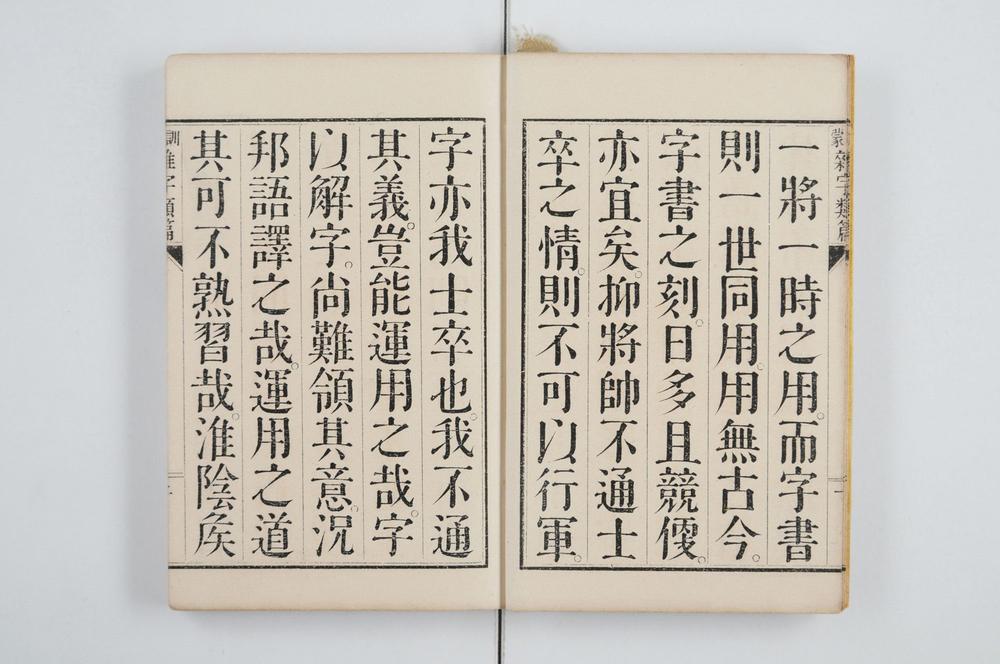 一將一時之用。而字書
則一世同用。用無古今。
字書之刻。日多且競㑓。
亦宜矣。抑將帥不通士
卒之情。則不可以行軍。
字亦我士卒也。我不通
其義。豈能運用之哉。字
以解字。尚難領其意。況
邦語譯之哉。運用之道
其可不熟習哉。淮陰矦